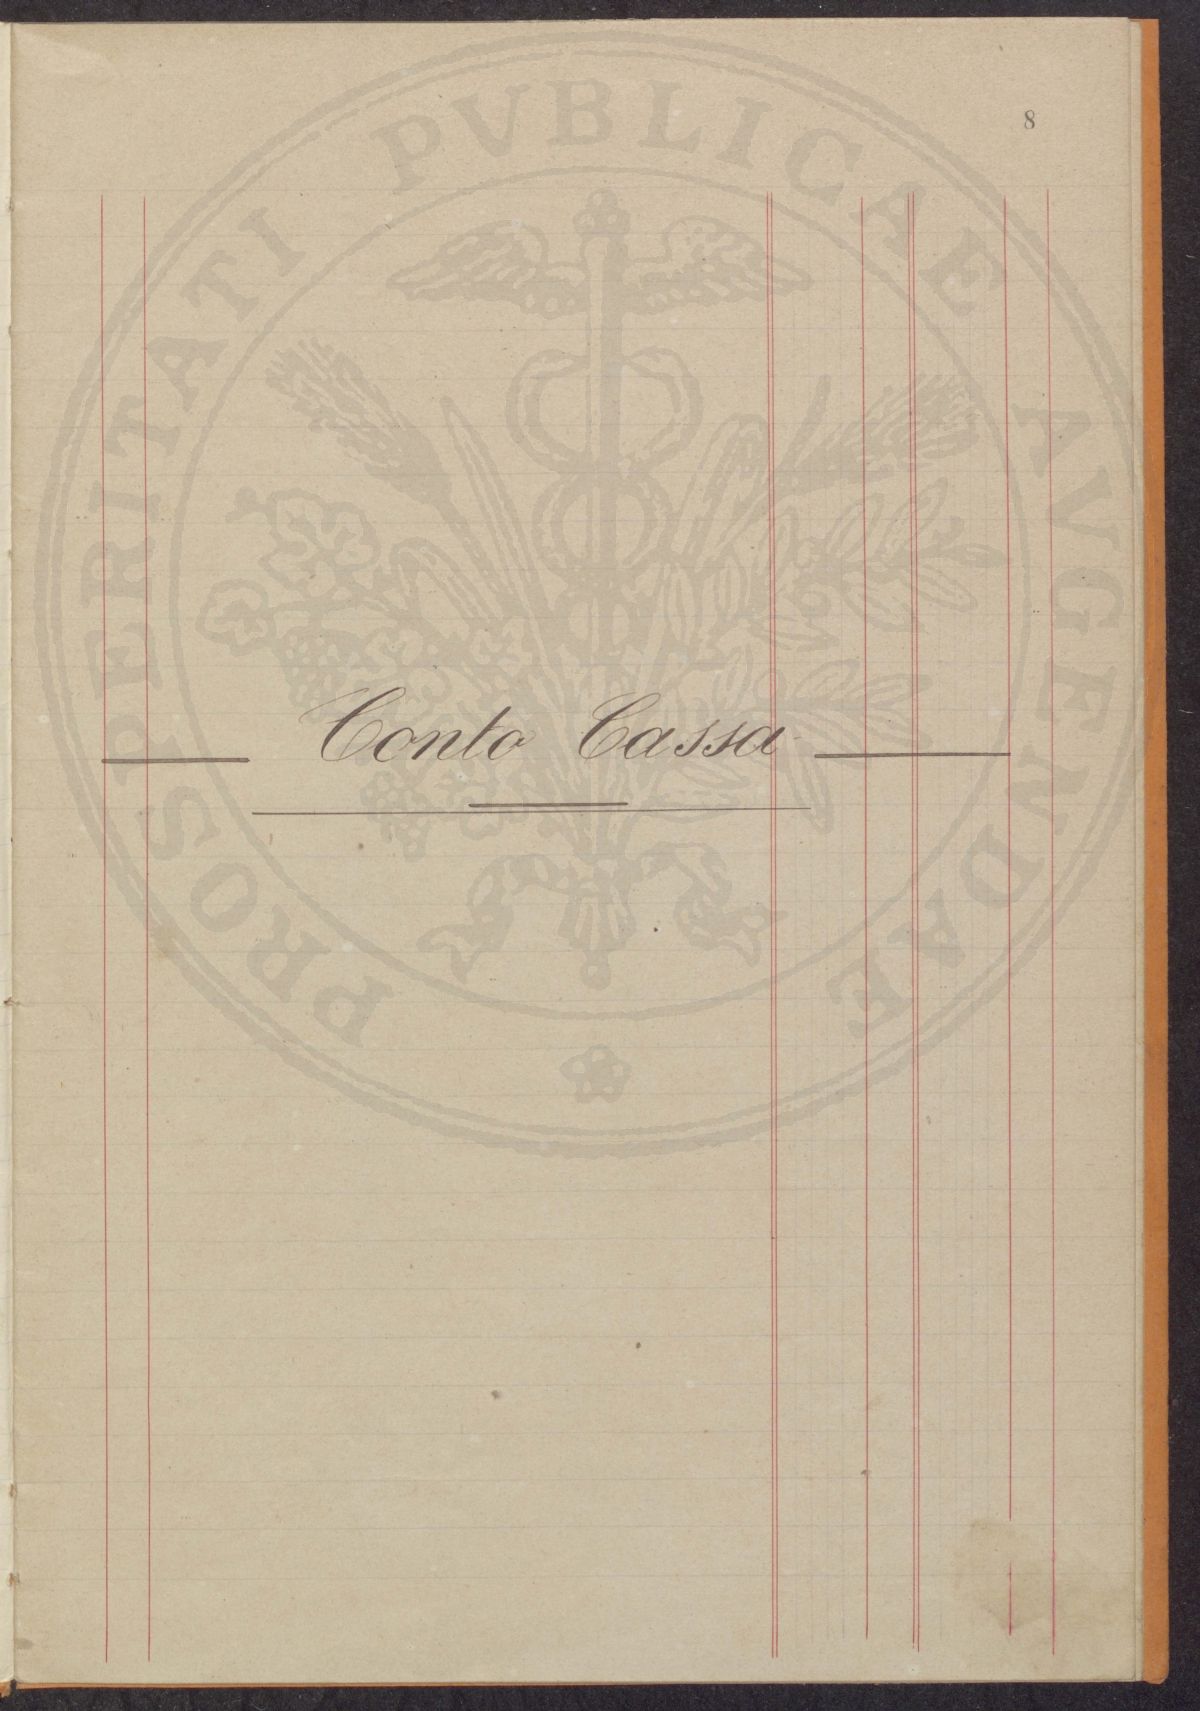 8
PROSPERITATI PVBLICAE AVGENDAE
Conto Cassa